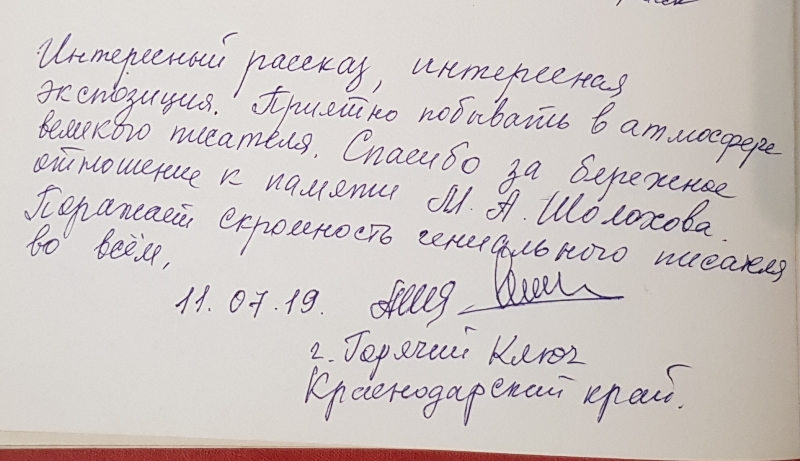 Интересный рассказ, интересная
экспозиция. Приятно побывать в атмосфере
великого писателя. Спасибо за бережное
отношение к памяти М. А. Шолохова.
Поражает скромность гениального писателя
во всём,
11.07.19.
г. Горячий Ключ
Краснодарский край.